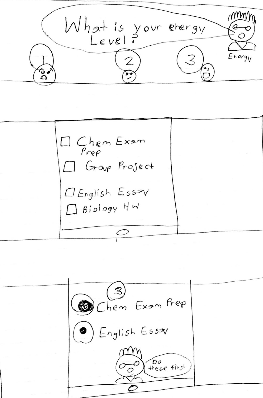 What is your energy
Level?
1
2
3
Energy
Chem Exam
Prep
Group Project
English Essay
Biology HW
3
Chem Exam Prep
English Essay
Do
these first